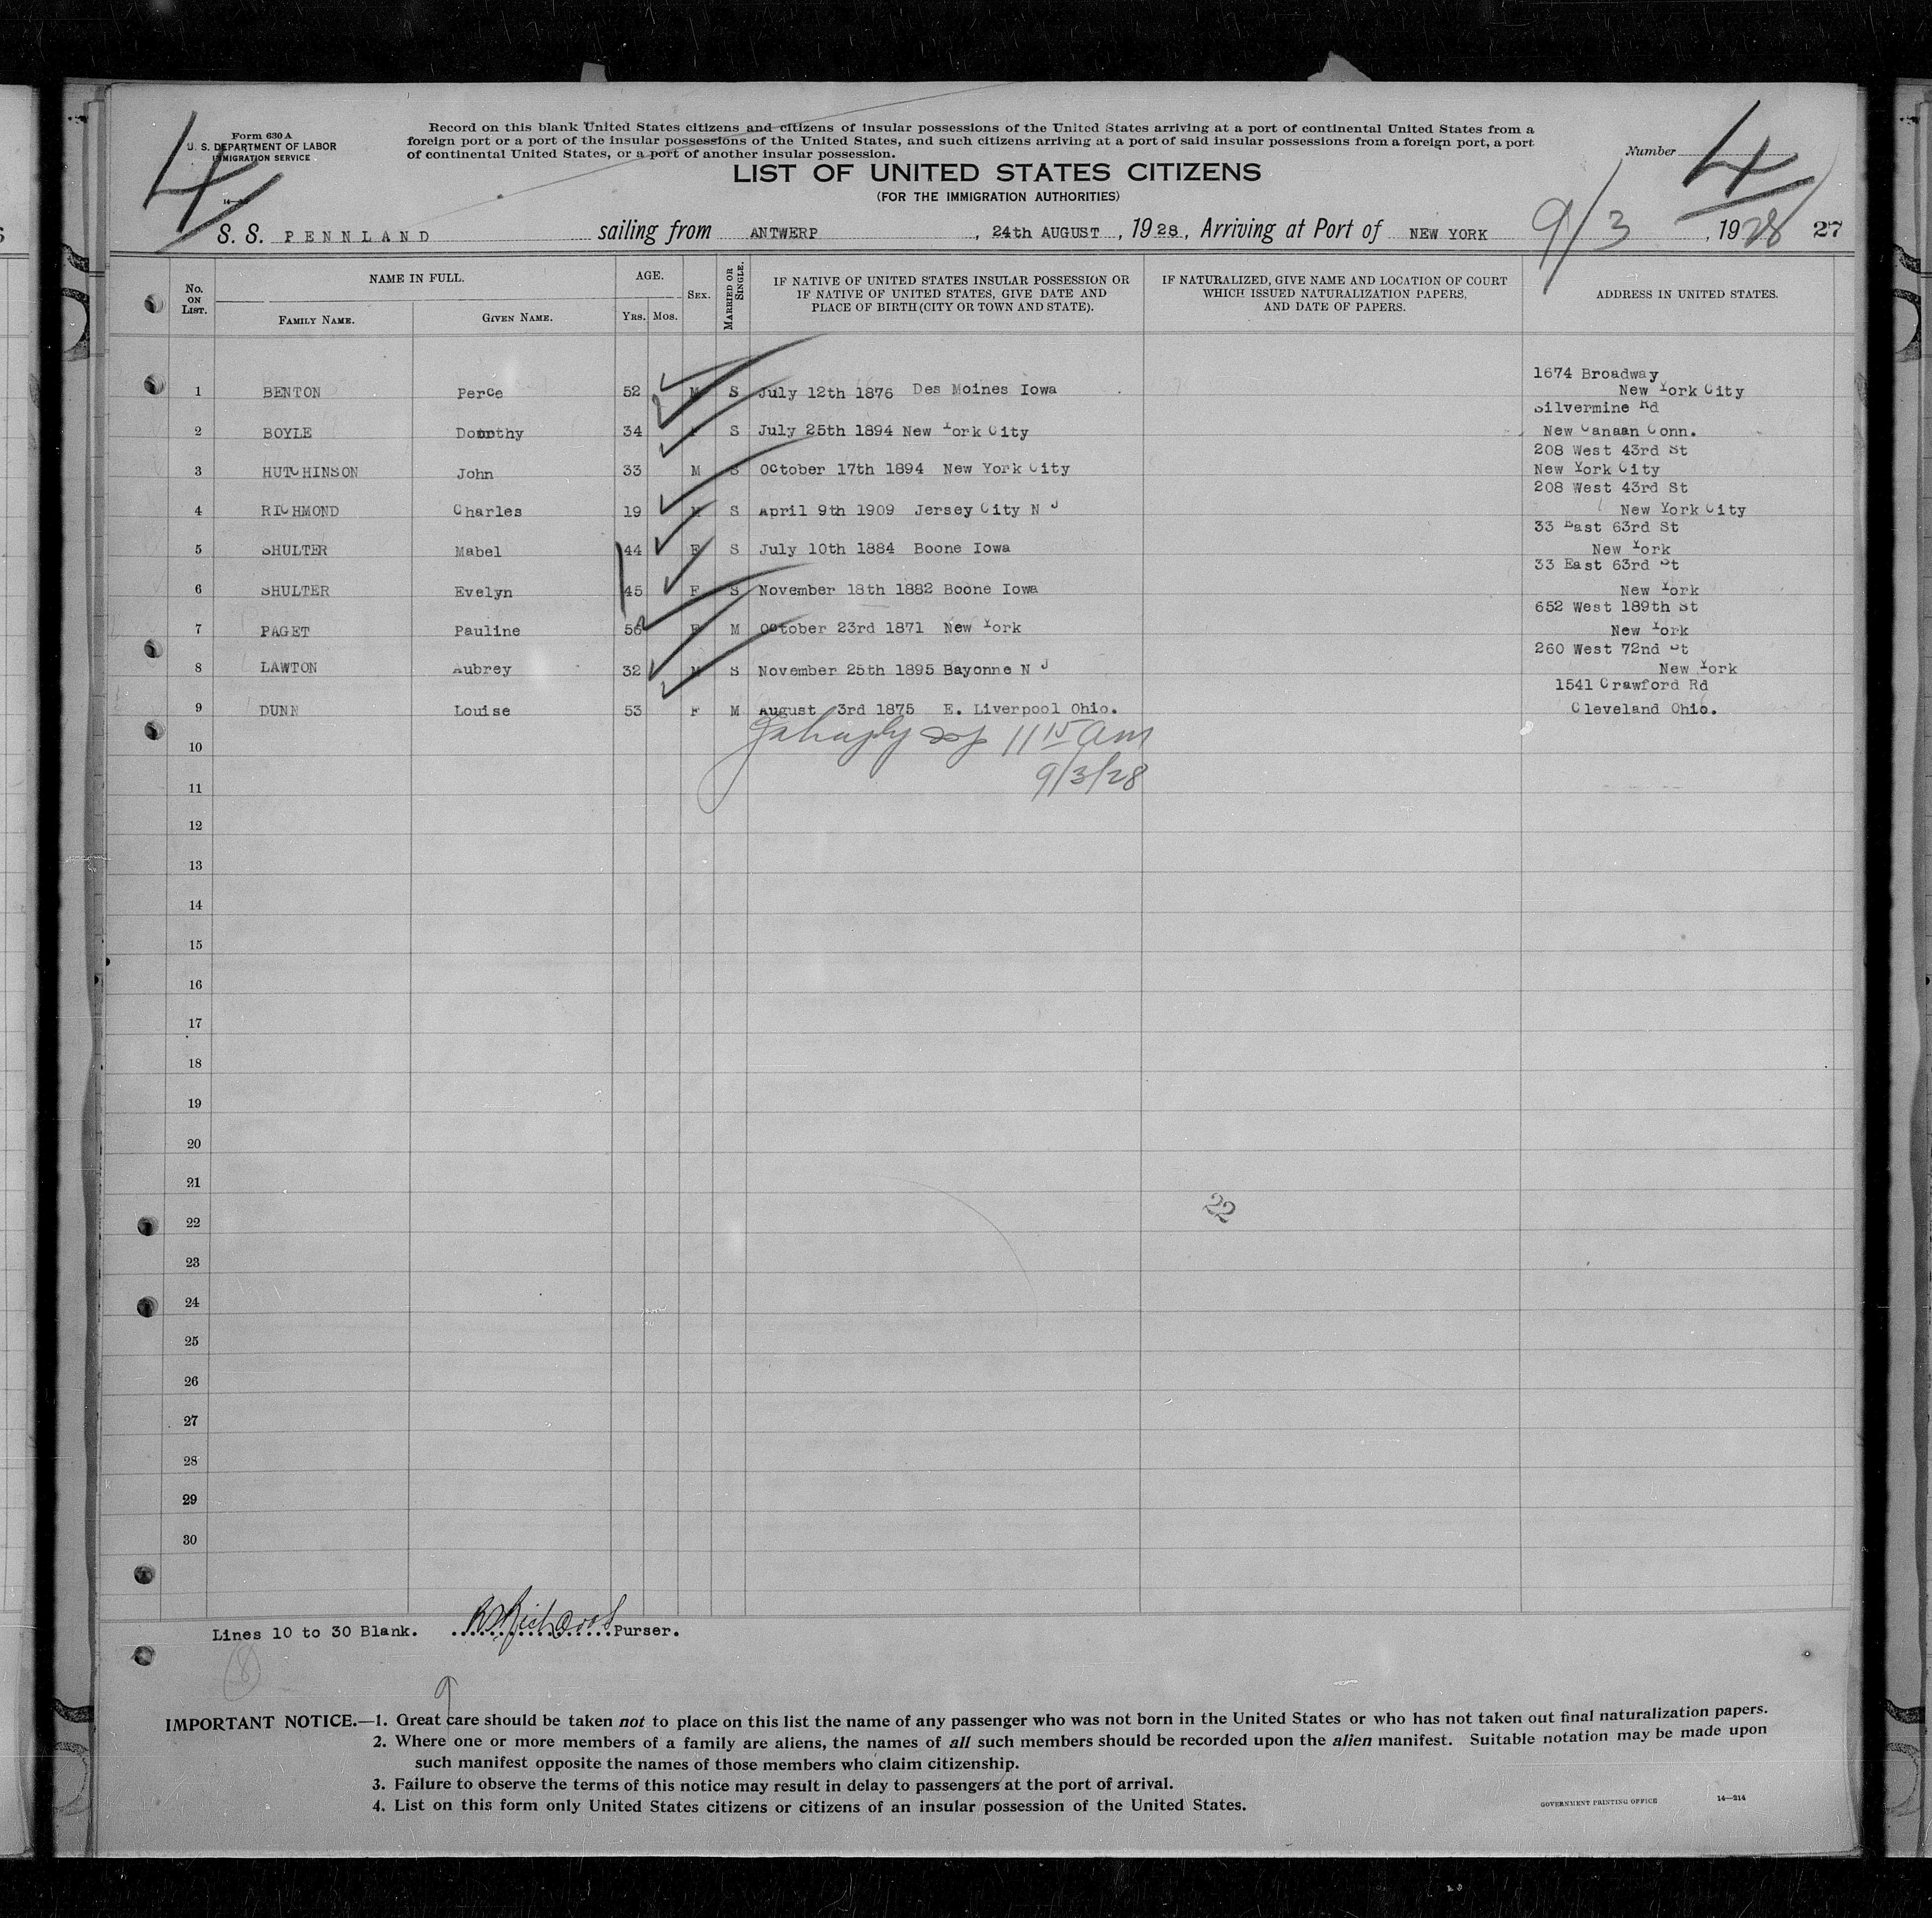 Form 630 A
U. S. DEPARTMENT OF LABOR
IMMIGRATION SERVICE
4
Record on this blank United States citizens and citizens of insular possessions of the United States arriving at a port of continental United States from a
foreign port or a port of the insular possessions of the United States, and such citizens arriving at a port of said insular possessions from a foreign port, a port
of continental United States, or a port of another insular possession.
Number 4
LIST OF UNITED STATES CITIZENS
(FOR THE IMMIGRATION AUTHORITIES)
S. S. PENNLAND sailing from ANTWERP, 24th AUGUST, 1928, Arriving at Port of NEW YORK 9/3, 1928 27
No. ON LIST. NAME IN FULL. FAMILY NAME. GIVEN NAME. AGE. YRS. MOS. SEX. MARRIED OR SINGLE. IF NATIVE OF UNITED STATES INSULAR POSSESSION OR IF NATIVE OF UNITED STATES, GIVE DATE AND PLACE OF BIRTH (CITY OR TOWN AND STATE). IF NATURALIZED, GIVE NAME AND LOCATION OF COURT WHICH ISSUED NATURALIZATION PAPERS, AND DATE OF PAPERS. ADDRESS IN UNITED STATES.
1674 Broadway
1 BENTON Perce 52 M S July 12th 1876 Des Moines Iowa New York City
Silvermine Rd
2 BOYLE Dorothy 34 F S July 25th 1894 New York City New Canaan Conn.
208 West 43rd St
3 HUTCHINSON John 33 M S October 17th 1894 New York City New York City
208 West 43rd St
4 RICHMOND Charles 19 M S April 9th 1909 Jersey City N J New York City
33 East 63rd St
5 SHULTER Mabel 44 F S July 10th 1884 Boone Iowa New York
33 East 63rd St
6 SHULTER Evelyn 45 F S November 18th 1882 Boone Iowa New York
652 West 189th St
7 PAGET Pauline 56 F M October 23rd 1871 New York New York
260 West 72nd St
8 LAWTON Aubrey 32 M S November 25th 1895 Bayonne N J New York
1541 Crawford Rd
9 DUNN Louise 53 F M August 3rd 1875 E. Liverpool Ohio. Cleveland Ohio.
10 11 15 am
9/3/28
11
12
13
14
15
16
17
18
19
20
21
22 22
23
24
25
26
27
28
29
30
Lines 10 to 30 Blank. Purser.
8
9
IMPORTANT NOTICE.—1. Great care should be taken not to place on this list the name of any passenger who was not born in the United States or who has not taken out final naturalization papers.
2. Where one or more members of a family are aliens, the names of all such members should be recorded upon the alien manifest. Suitable notation may be made upon
such manifest opposite the names of those members who claim citizenship.
3. Failure to observe the terms of this notice may result in delay to passengers at the port of arrival.
4. List on this form only United States citizens or citizens of an insular possession of the United States.
GOVERNMENT PRINTING OFFICE 14—214